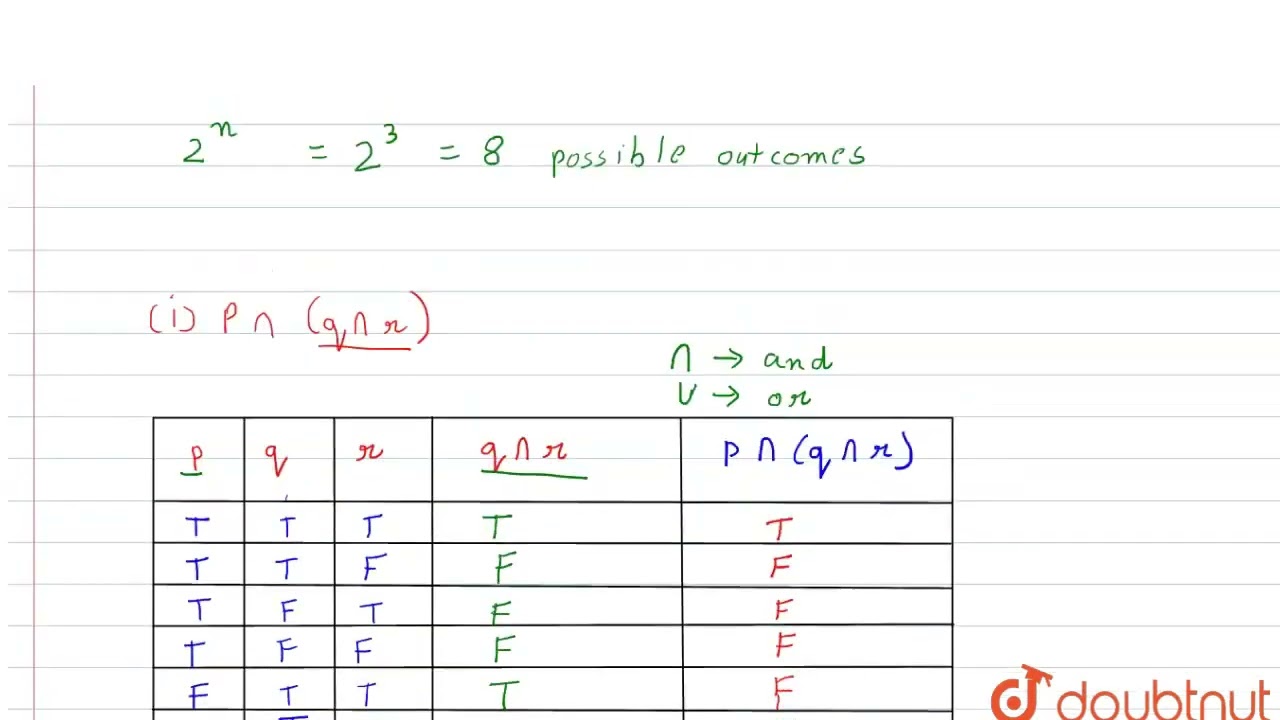 2^n = 2^3 = 8 possible outcomes
(i) P ∩ (q ∩ r)
∩ → and
∪ → or
p q r q ∩ r p ∩ (q ∩ r)
T T T T T
T T F F F
T F T F F
T F F F F
F T T T F
T
doubtnut